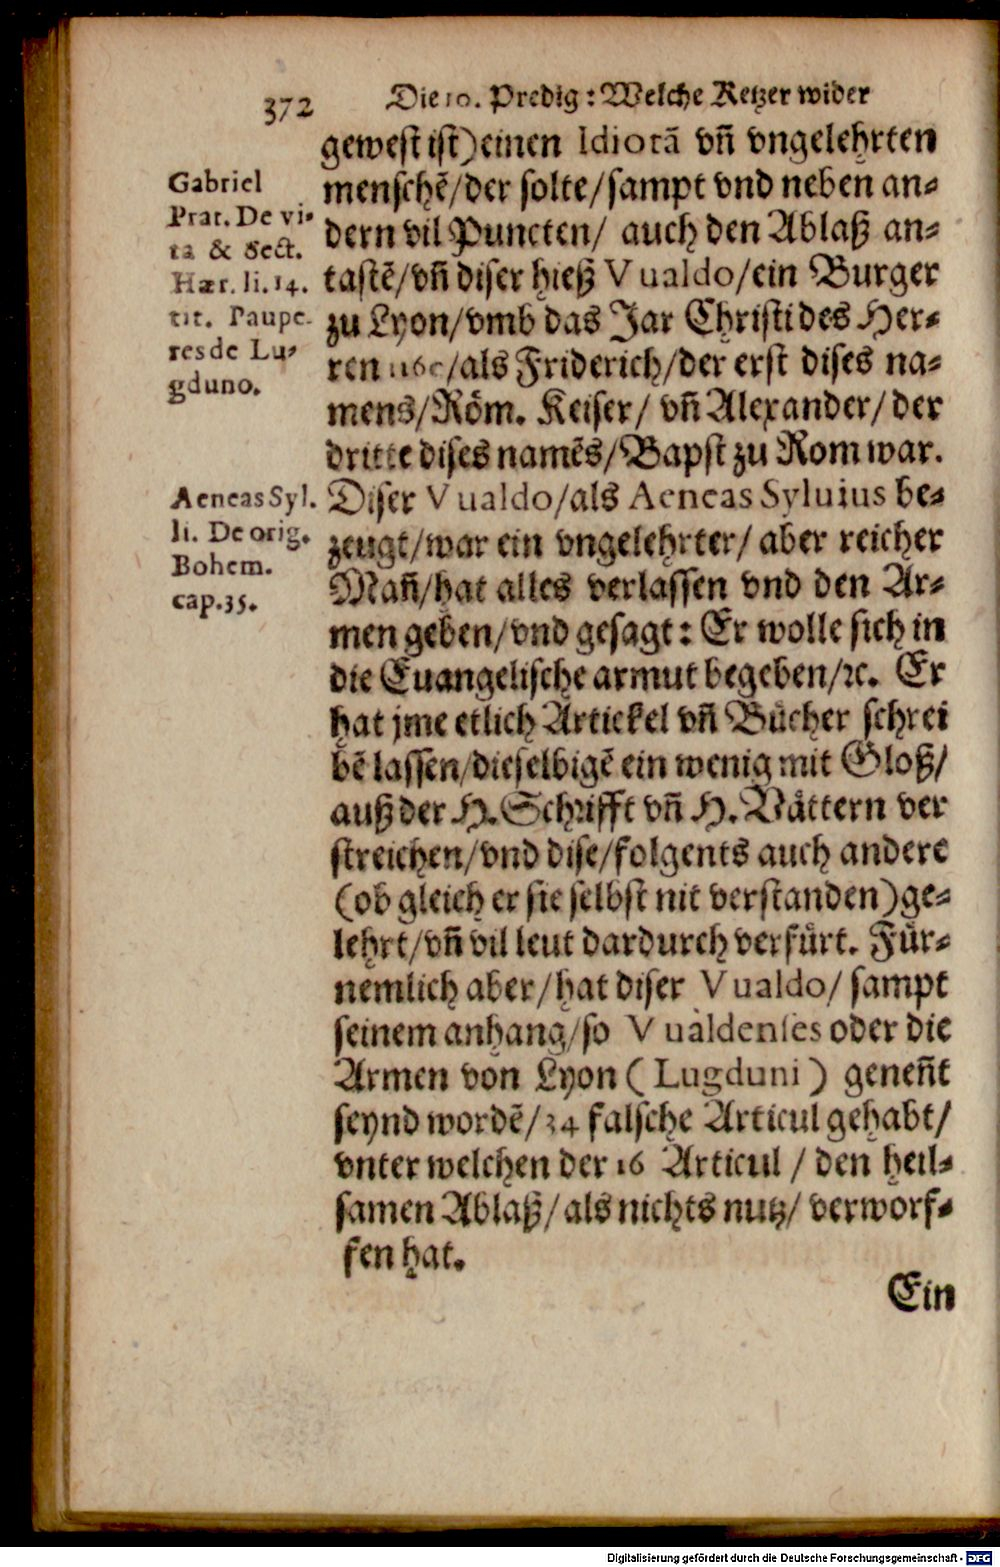 372 Die 10. Predig: Welche Ketzer wider
gewest ist) einen Idiotã vñ vngelehrten
menschẽ/der solte/sampt vnd neben an-
dern vil Puncten/ auch den Ablaß an-
tastẽ/vñ diser hieß Vualdo/ein Burger
zu Lyon/vmb das Jar Christi des Her-
ren 1160/als Friderich/der erst dises na-
mens/Röm. Keiser/ vñ Alexander/ der
dritte dises namẽs/Bapst zu Rom war.
Diser Vualdo/als Aeneas Syluius be-
zeugt/war ein vngelehrter/ aber reicher
Mañ/hat alles verlassen vnd den Ar-
men geben/vnd gesagt: Er wolle sich in
die Euangelische armut begeben/ꝛc. Er
hat jme etlich Artickel vñ Bücher schrei
bẽ lassen/dieselbigẽ ein wenig mit Gloß/
auß der H. Schrifft vñ H. Vättern ver
streichen/vnd dise/folgents auch andere
(ob gleich er sie selbst nit verstanden) ge-
lehrt/vñ vil leut dardurch verfürt. Für-
nemlich aber/hat diser Vualdo/ sampt
seinem anhang/so Vualdenses oder die
Armen von Lyon (Lugduni) geneñt
seynd wordẽ/34 falsche Articul gehabt/
vnter welchen der 16 Articul / den heil-
samen Ablaß/als nichts nutz/ verworf-
fen hat.
Ein
Gabriel
Prat. De vi-
ta & Sect.
Hær. li. 14.
tit. Paupe-
res de Lu-
gduno.
Aeneas Syl.
li. De orig.
Bohem.
cap. 35.
Digitalisierung gefördert durch die Deutsche Forschungsgemeinschaft - DFG